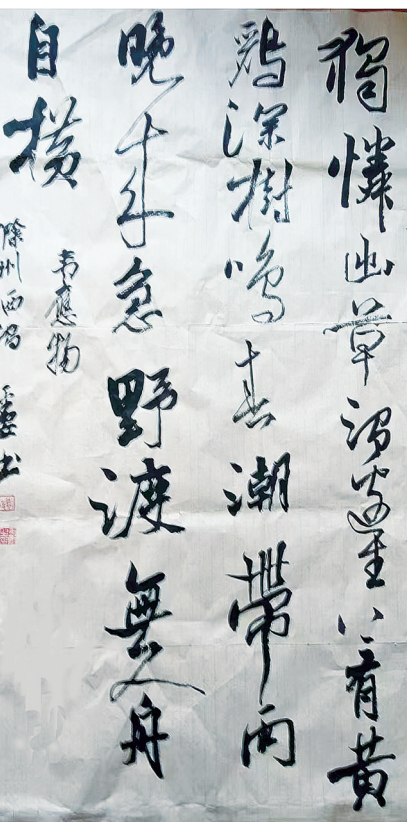 獨憐幽草澗邊生上有黃
鸝深樹鳴春潮帶雨
晚來急野渡無人舟
自橫
韦應物
滁州西澗 书